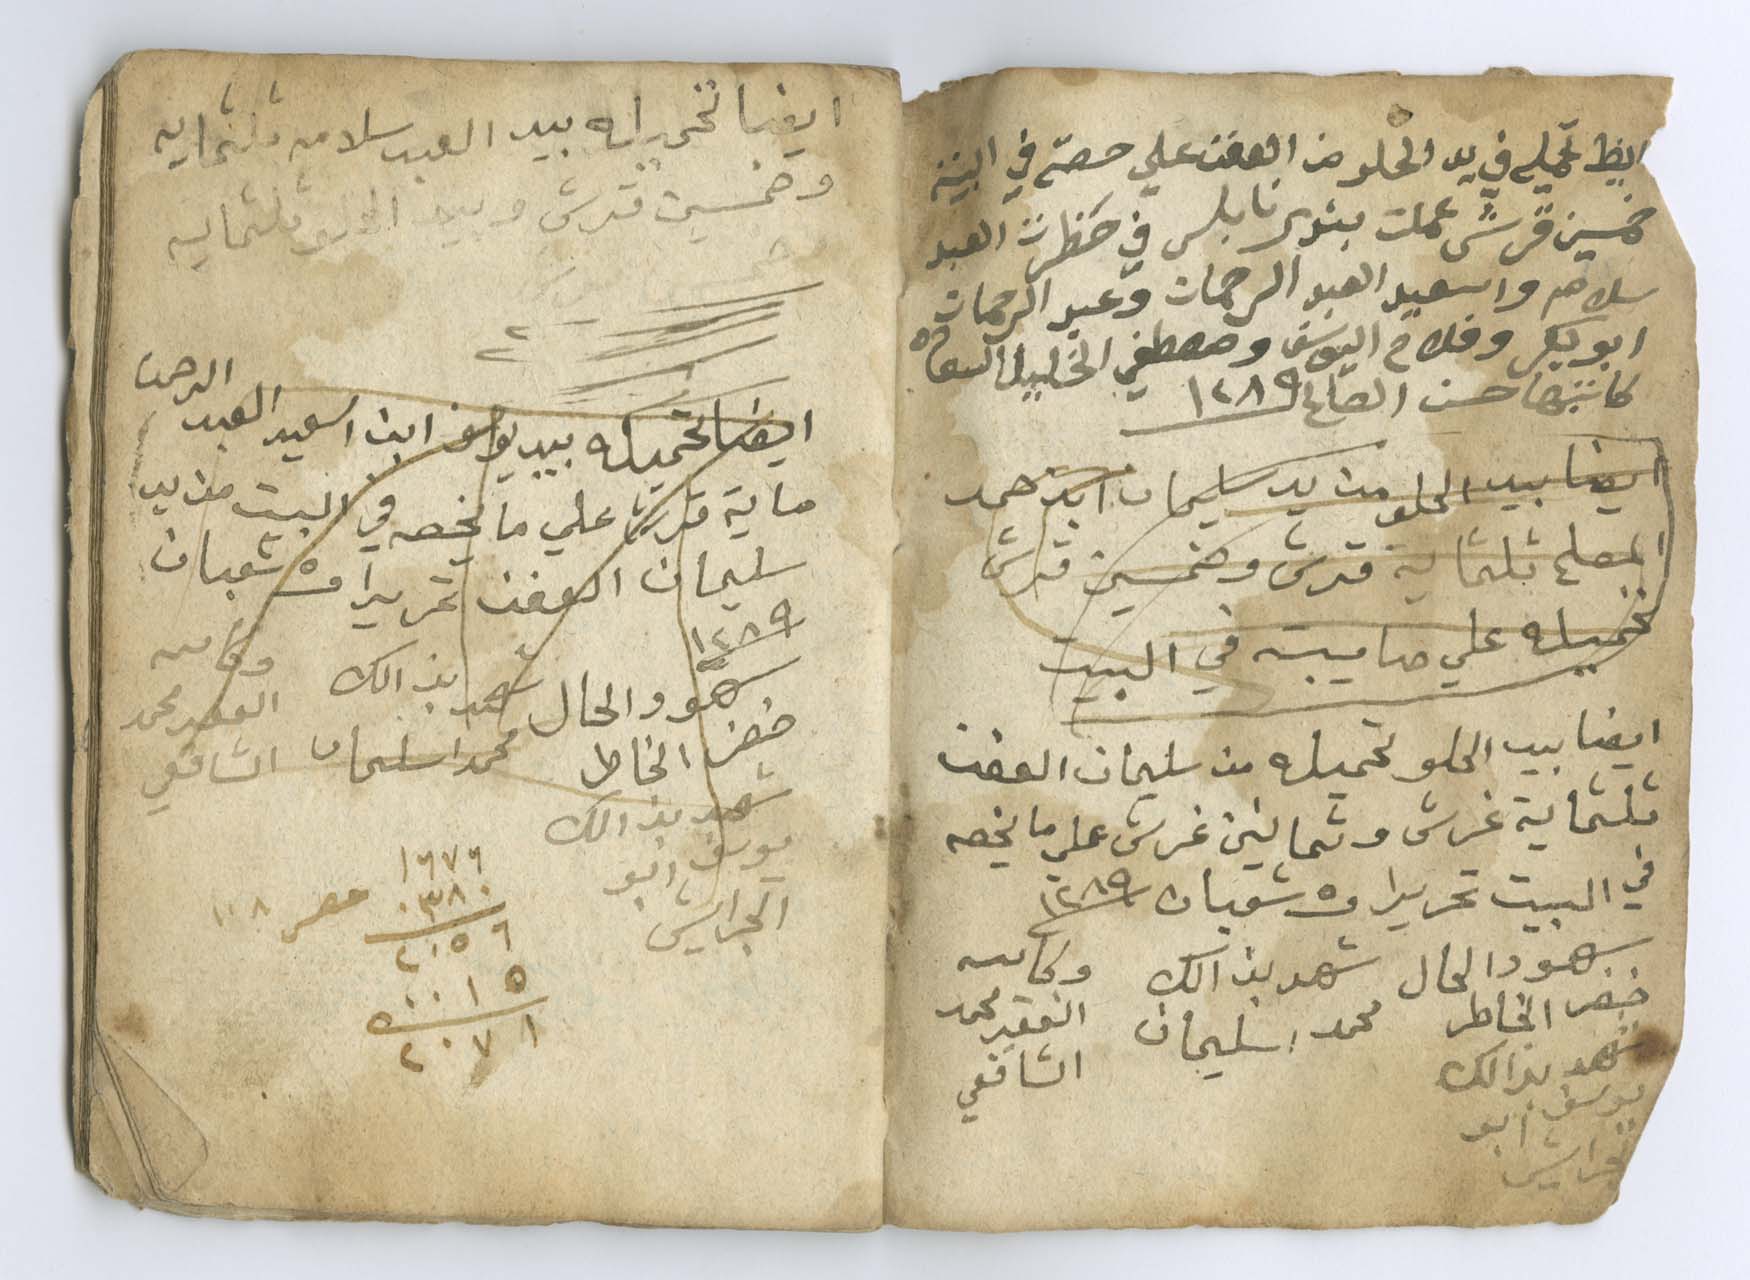 ايظ تحميله في يد الحلو من العفن علي حصته في البيت
خمسين قرش عملت بندر نابلس في حظرت العبد
سلامه واسعيد العبد الرحمان وعبد الرحمان
ابو بكر وفلاح اليوسف ومصطفي الخليل
كاتبها حسن الصالح ١٢٨٩
ايضا بيد الحلو من يد سليمان ابن حمد
المصلح ثلثماية قرش وخمسين قرش
تحميله علي صايبته في البيت
ايضا بيد الحلو تحميله من سليمان العفن
ثلثماية غرش وثمانين غرش علي ما يخصه
في البيت تحريرا في ٥ شعبان ١٢٨٩
شهود الحال شهد بذالك وكاتبه
خضر الخاطر محمد اسليمان الفقير محمد
الشافعي
شهد بذالك
يوسف ابو
ايضا تحميله بيد العبد سلامه ثلثمايه
وخمسين قرش وبيد الحلو ثلثمايه
٢
الرحمن
ايضا تحميله بيد يوسف ابن اسعيد العبد
ماية قرش علي ما يخصه في البيت من يد
سليمان العفن تحريرا في ٥ شعبان
١٢٨٩
شهود الحال شهد بذالك وكاتبه
خضر الخاطر محمد اسليمان الفقير محمد
الشافعي
شهد بذالك
يوسف ابو
الجرايش
١٦٧٦
٠٣٨٠
٢٠٥٦
٠٠١٥
٢٠٧١